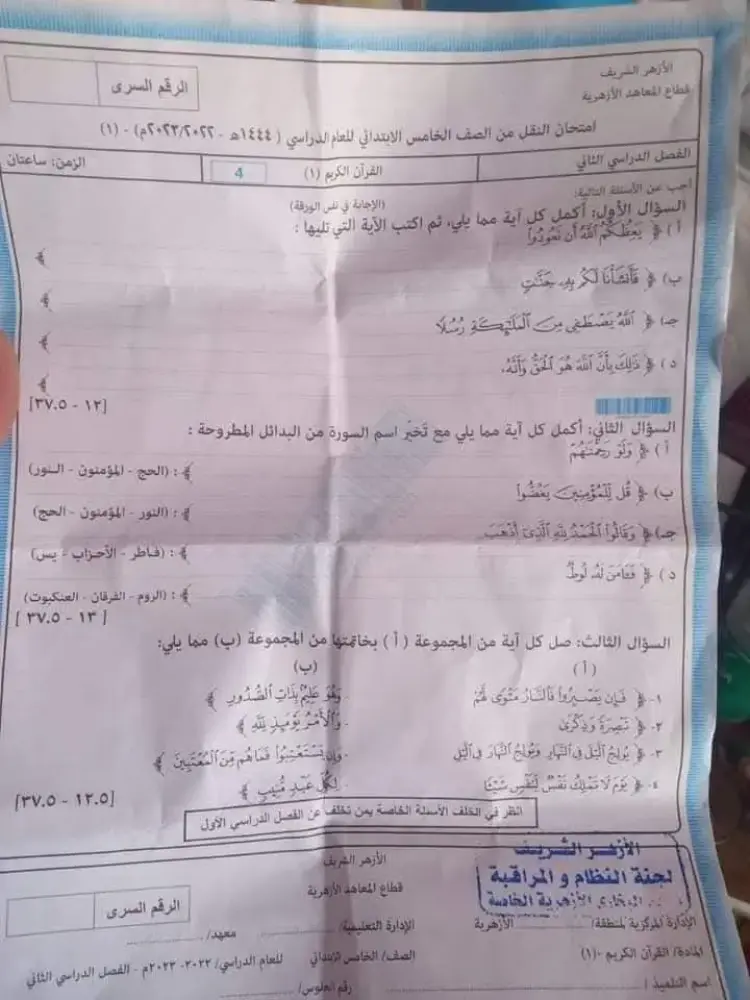 الأزهر الشريف
قطاع المعاهد الأزهرية
الرقم السرى
امتحان النقل من الصف الخامس الابتدائي للعام الدراسي (١٤٤٤هـ - ٢٠٢٣/٢٠٢٢م) - (١)
الفصل الدراسي الثاني
القرآن الكريم (١)
4
الزمن: ساعتان
أجب عن الأسئلة التالية:
(الإجابة في نفس الورقة)
السؤال الأول: أكمل كل آية مما يلي، ثم اكتب الآية التي تليها :
أ ) ﴿ يَعِظُكُمُ ٱللَّهُ أَن تَعُودُوا۟ ﴾
ب) ﴿ فَأَنشَأْنَا لَكُم بِهِۦ جَنَّـٰتٍ ﴾
جـ) ﴿ ٱللَّهُ يَصْطَفِى مِنَ ٱلْمَلَـٰٓئِكَةِ رُسُلًا ﴾
د ) ﴿ ذَٰلِكَ بِأَنَّ ٱللَّهَ هُوَ ٱلْحَقُّ وَأَنَّهُۥ ﴾
[١٢ - ٣٧.٥]
السؤال الثاني: أكمل كل آية مما يلي مع تَخيَّر اسم السورة من البدائل المطروحة :
أ ) ﴿ وَلَوْ رَحِمْنَـٰهُمْ ﴾ : (الحج - المؤمنون - النور)
ب) ﴿ قُل لِّلْمُؤْمِنِينَ يَغُضُّوا۟ ﴾ : (النور - المؤمنون - الحج)
جـ) ﴿ وَقَالُوا۟ ٱلْحَمْدُ لِلَّهِ ٱلَّذِىٓ أَذْهَبَ ﴾ : (فاطر - الأحزاب - يس)
د ) ﴿ فَـَٔامَنَ لَهُۥ لُوطٌ ﴾ : (الروم - الفرقان - العنكبوت)
[١٣ - ٣٧.٥]
السؤال الثالث: صل كل آية من المجموعة ( أ ) بخاتمتها من المجموعة (ب) مما يلي:
( أ ) (ب)
١- ﴿ فَإِن يَصْبِرُوا۟ فَٱلنَّارُ مَثْوًى لَّهُمْ - وَهُوَ عَلِيمٌۢ بِذَاتِ ٱلصُّدُورِ ﴾
٢- ﴿ تَبْصِرَةً وَذِكْرَىٰ - وَٱلْأَمْرُ يَوْمَئِذٍ لِّلَّهِ ﴾
٣- ﴿ يُولِجُ ٱلَّيْلَ فِى ٱلنَّهَارِ وَيُولِجُ ٱلنَّهَارَ فِى ٱلَّيْلِ - وَإِن يَسْتَعْتِبُوا۟ فَمَا هُم مِّنَ ٱلْمُعْتَبِينَ ﴾
٤- ﴿ يَوْمَ لَا تَمْلِكُ نَفْسٌ لِّنَفْسٍ شَيْـًٔا - لِكُلِّ عَبْدٍ مُّنِيبٍ ﴾
[١٢.٥ - ٣٧.٥]
انظر في الخلف الأسئلة الخاصة بمن تخلف عن الفصل الدراسي الأول
الأزهر الشريف
لجنة النظام و المراقبة
الأزهرية الخاصة
الأزهر الشريف
قطاع المعاهد الأزهرية
الرقم السرى
الإدارة المركزية لمنطقة/ الأزهرية
الإدارة التعليمية/
معهد/
المادة/ القرآن الكريم -(١)
الصف/ الخامس الابتدائي
للعام الدراسي/ ٢٠٢٢- ٢٠٢٣م - الفصل الدراسي الثاني
اسم التلميذ /
رقم الجلوس/